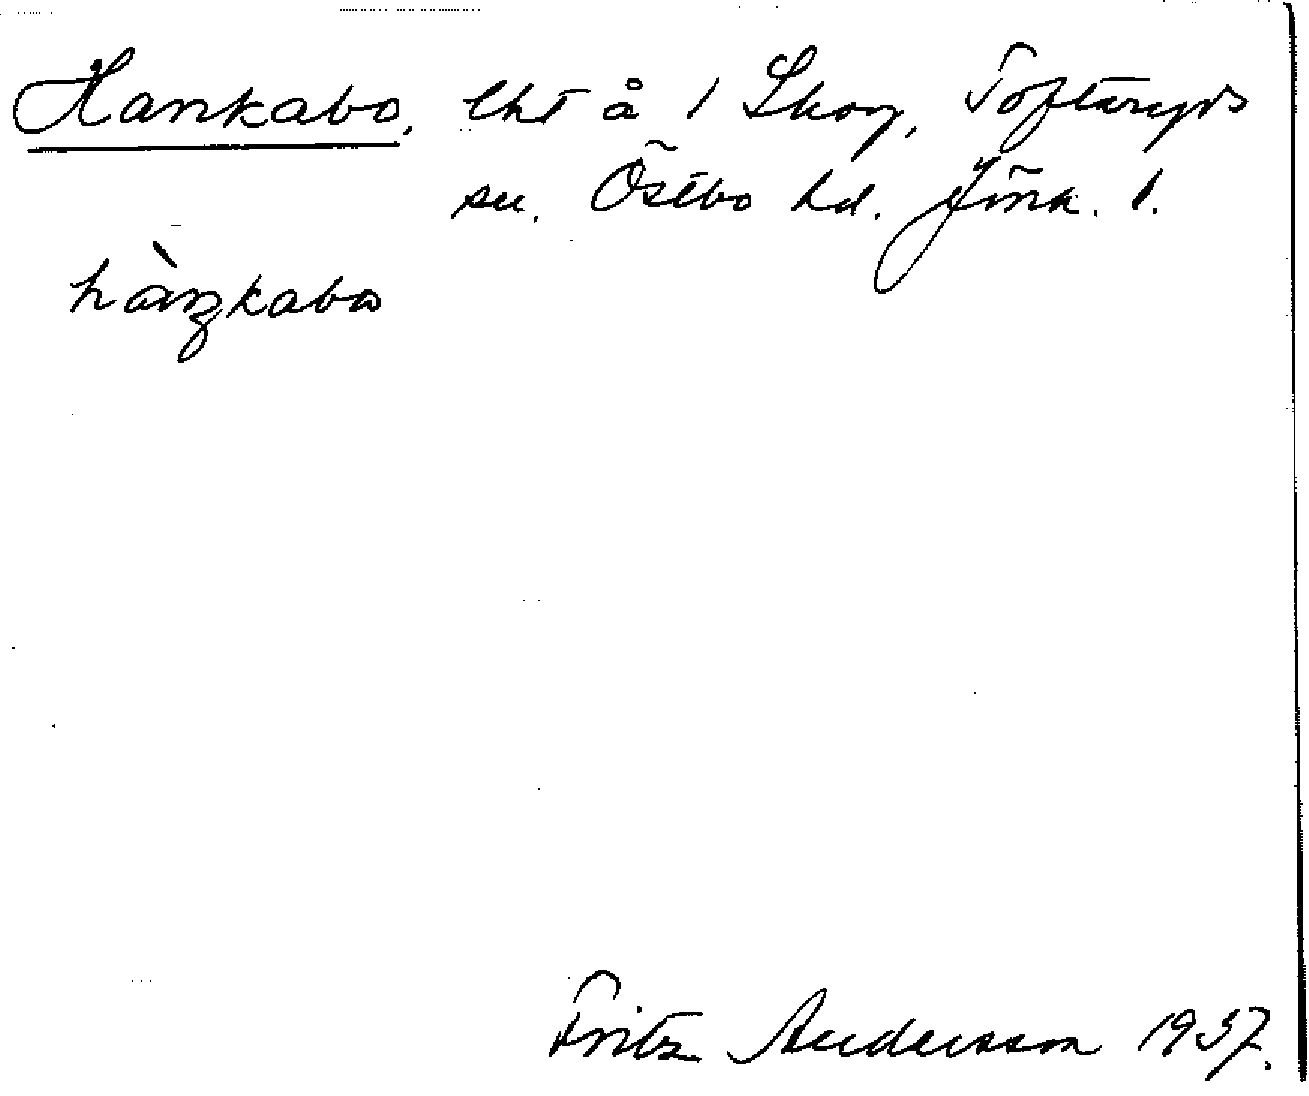 Hankabo, lht å 1 Skog, Toftaryds
sn. Östbo hd. Jönk. l.
hàŋkabo
Fritz Andersson 1937.